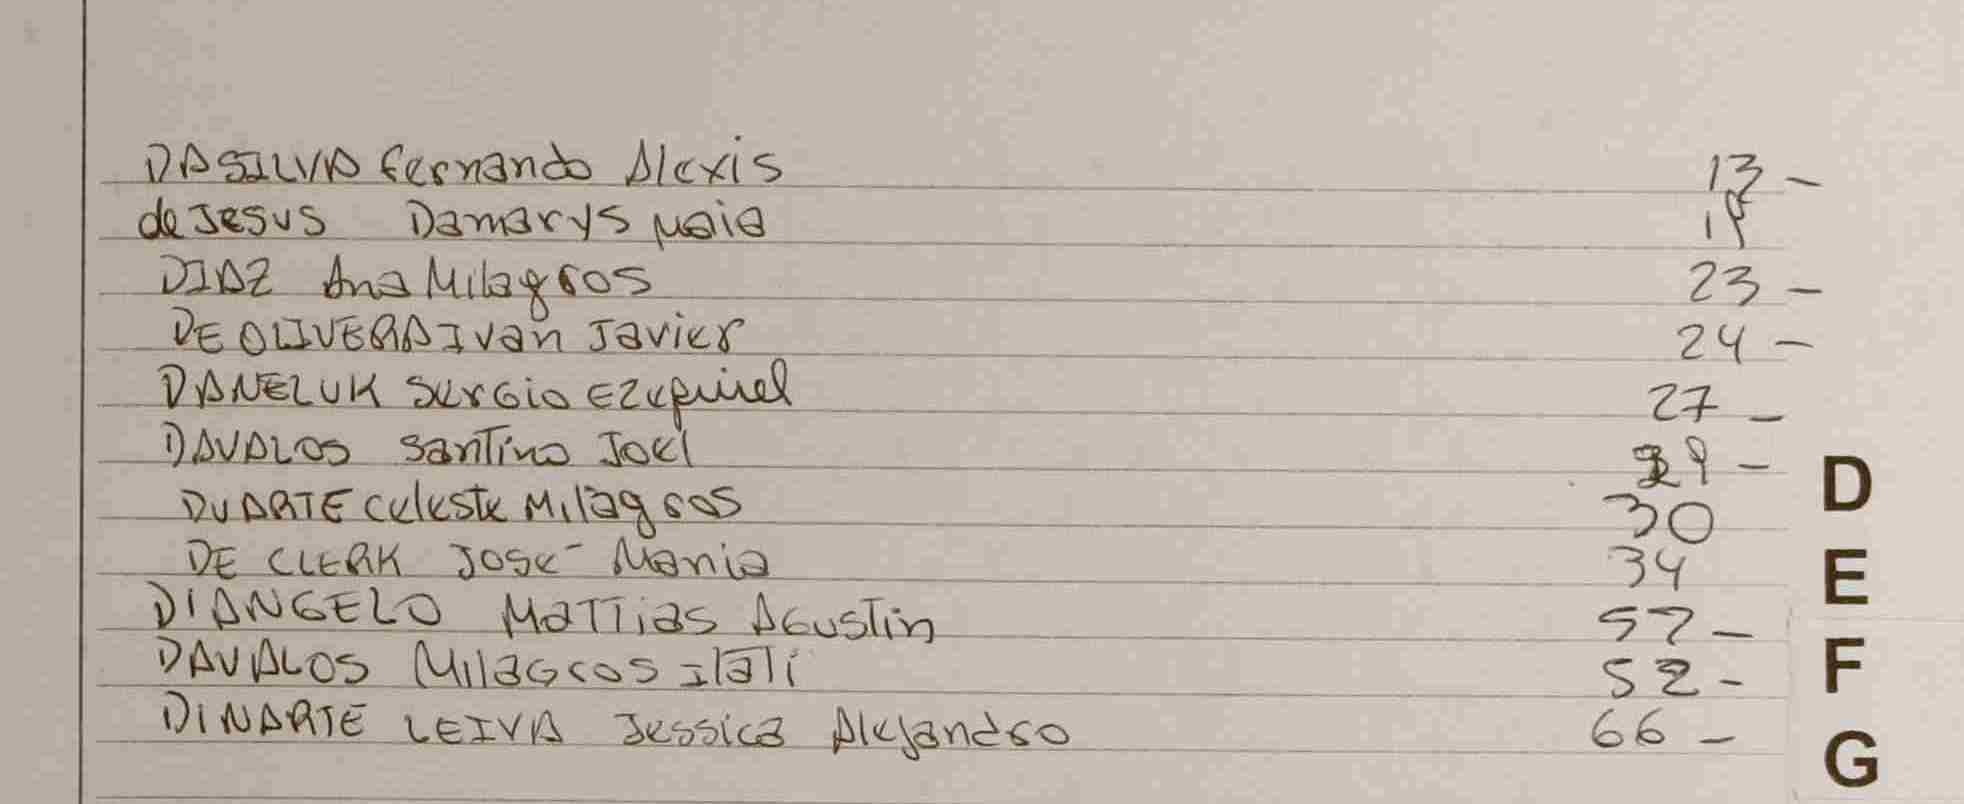 DASILVA Fernando Alexis 13 -
de Jesus Damarys Maia 19
DIAZ Ana Milagros 23 -
DE OLIVERA Ivan Javier 24 -
DANELUK Sergio Ezequiel 27 -
DAVALOS Santino Joel 29 -
DUARTE Celeste Milagros 30
DE CLERK José Maria 34
DIANGELO Mattias Agustin 57 -
DAVALOS Milagros Itati 52 -
DINARTE LEIVA Jessica Alejandro 66 -
D
E
F
G